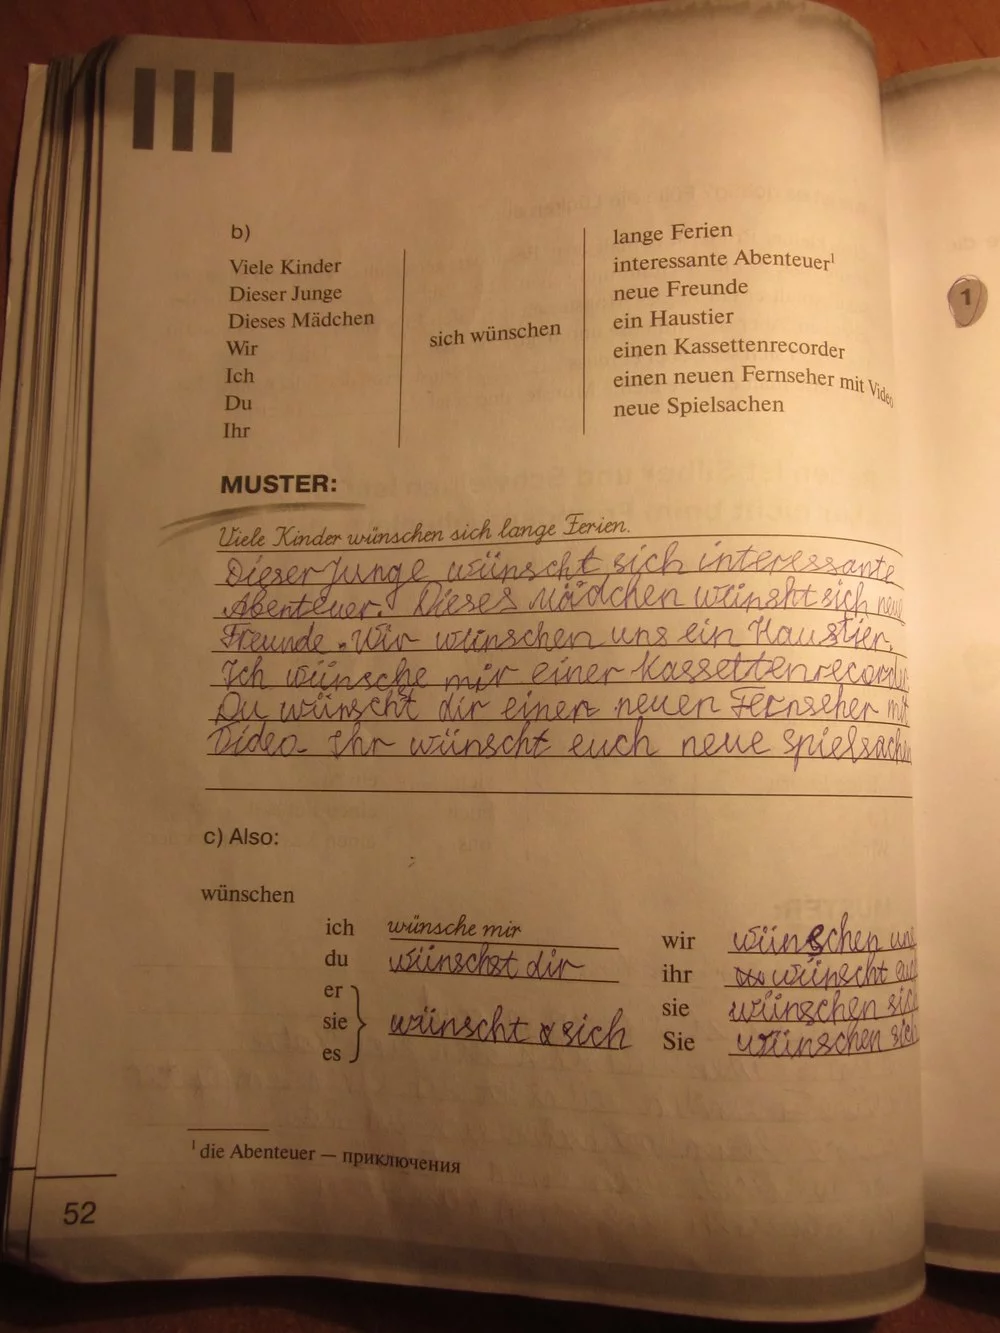 III
b)
Viele Kinder
Dieser Junge
Dieses Mädchen
Wir
Ich
Du
Ihr
sich wünschen
lange Ferien
interessante Abenteuer¹
neue Freunde
ein Haustier
einen Kassettenrecorder
einen neuen Fernseher mit Video
neue Spielsachen
MUSTER:
Viele Kinder wünschen sich lange Ferien.
Dieser Junge wünscht sich interessante
Abenteuer. Dieses Mädchen wünsht sich neue
Freunde. Wir wünschen uns ein Haustier.
Ich wünsche mir einer Kassettenrecorder
Du wünscht dir einen neuen Fernseher mit
Video. Ihr wünscht euch neue Spielsachen
c) Also:
wünschen
ich wünsche mir
du wünschst dir
er
sie wünscht sich
es
wir wünschen uns
ihr wünscht euch
sie wünschen sich
Sie wünschen sich
¹ die Abenteuer — приключения
52
1